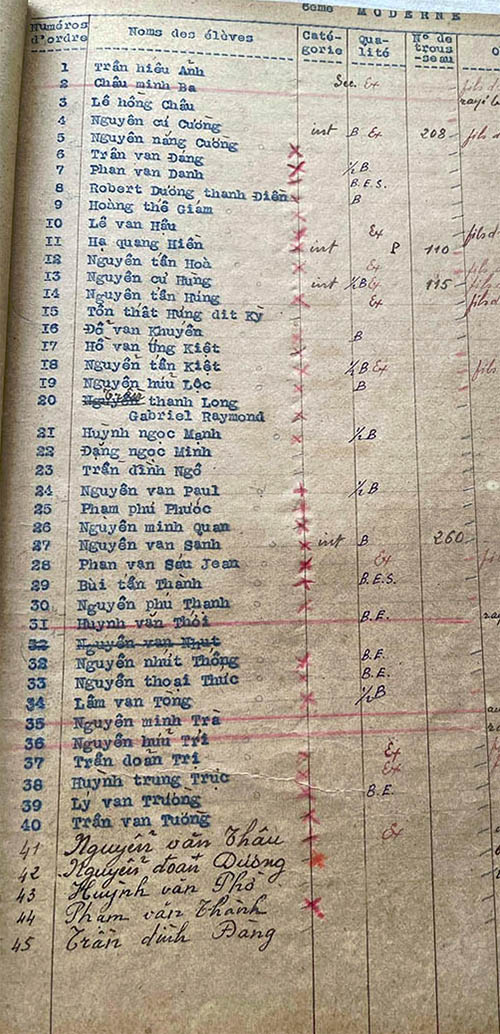 6ème MODERNE
Numéros d'ordre Noms des élèves Caté-gorie Qua-lité N° de trous-seau
1 Trần hiếu Anh
2 Châu minh Ba Sec. Ex fils d
3 Lê hồng Châu rayé
4 Nguyễn cư Cường int B Ex 208 fils
5 Nguyễn năng Cường x
6 Trần van Dang x ½ B
7 Phan van Danh B.E.S.
8 Robert Dương thanh Điền B
9 Hoàng thế Giám
10 Lê van Hâu Ex fils d
11 Hạ quang Hiền x int P 110
12 Nguyễn tấn Hoà Ex fils
13 Nguyễn cư Hưng int ½B Ex 115 fils
14 Nguyễn tấn Hùng x Ex fils d
15 Tôn thất Hứng dit Kỳ
16 Đỗ van Khuyến B
17 Hồ van Ứng Kiệt
18 Nguyễn tấn Kiệt x ½ B Ex fils
19 Nguyễn hữu Lộc x B
20 Nguyễn Trần thanh Long
Gabriel Raymond x
21 Huỳnh ngọc Mạnh x ½ B
22 Đặng ngọc Minh
23 Trần đình Ngô
24 Nguyễn van Paul x ½ B
25 Phạm phú Phước x
26 Nguyễn minh Quan x
27 Nguyễn van Sanh x int B 260
28 Phan van Sáu Jean x Ex
29 Bùi tấn Thành x B.E.S.
30 Nguyễn phú Thanh x
31 Huynh văn Thói B.E.
32 Nguyễn van Nhut
32 Nguyễn nhút Thống x B.E.
33 Nguyễn thoại Thức x B.E.
34 Lâm van Tòng x ½B
35 Nguyễn minh Trà
36 Nguyễn hữu Trí
37 Trần doãn Trị x Ex
38 Huỳnh trung Trực x Ex
39 Lý van Trường x B.E.
40 Trần van Tường x
41 Nguyễn văn Thâu x Ex
42 Nguyễn đoan Dương x
43 Huỳnh văn Phò
44 Phạm văn Thành x
45 Trần đình Đàng